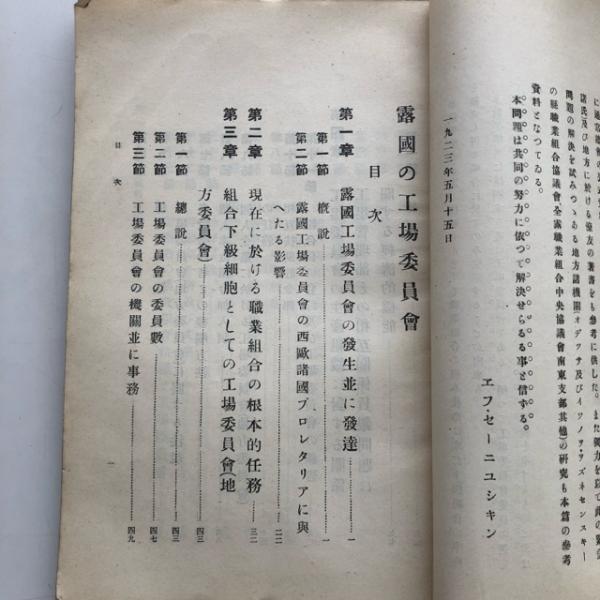 に
店氏及び地方に於ける
問題の解決を試みつゝある地方諸機關(オデッサ及びイワノヲ・ヲズネセンスキー
の縣職業組合協議會全露職業組合中央協議會南東支部其他)の研究も本篇の參考
資料となつてゐる。
本問題は共同の努力に依つて解決せらるる事と信ずる。
一九二三年五月十五日
エフ・セーニユシキン
露國の工場委員會
目次
第一章 露國工場委員會の發生並に發達……一
第一節 概說……一
第二節 露國工場委員會の西歐諸國プロレタリアに與
へたる影響……二二
第二章 現在に於ける職業組合の根本的任務……三二
第三章 組合下級細胞としての工場委員會(地
方委員會)……四三
第一節 總說……四三
第二節 工場委員會の委員數……四七
第三節 工場委員會の機關並に事務……四九
目次
一